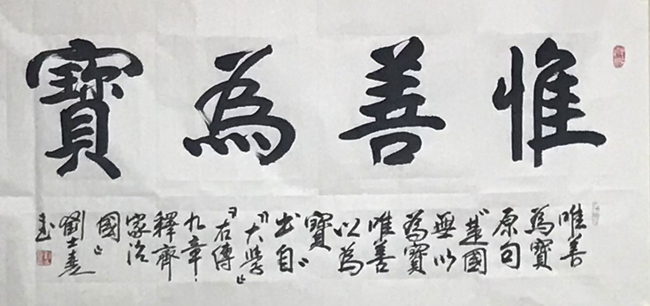 惟善為寶
唯善
為寶
原句
"楚國
無以
為寶
唯善
以為
寶"
出自
『大學』
『右傳
九章
釋齊
家治
國』
劉士
書